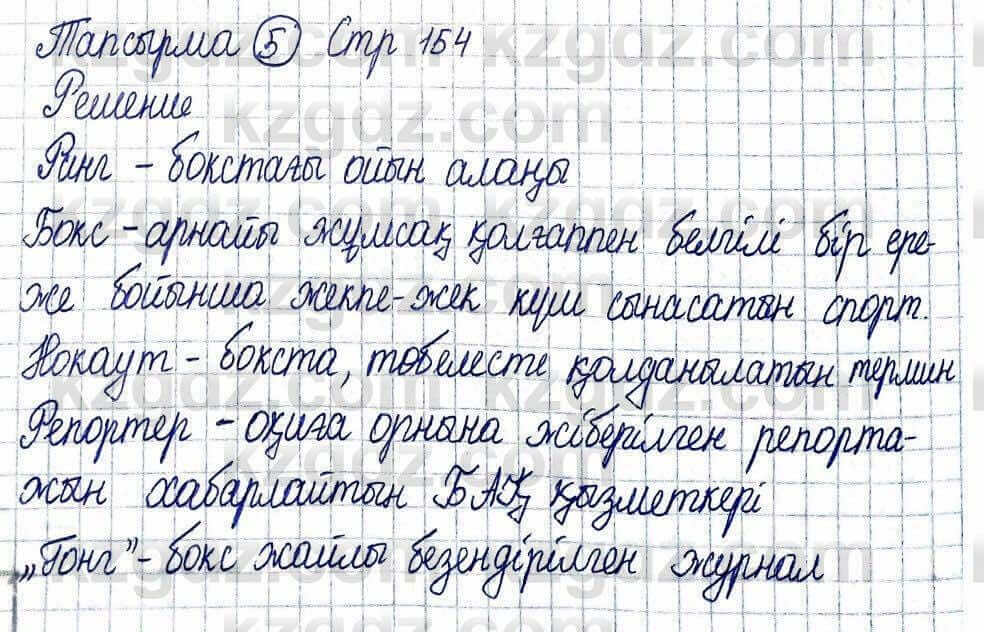 Тапсырма 5 Стр 154
Решение
Ринг - бокстағы ойын алаңы
Бокс - арнайы жұмсақ қолғаппен белгілі бір ере-
же бойынша жекпе-жек күш сынасатын спорт.
Нокаут - бокста, төбелесте қолданылатын термин
Репортер - оқиға орнына жіберілген репорта-
жын хабарлайтын БАҚ қызметкері
„Гонг” - бокс жайлы безендірілген журнал
kzgdz.com